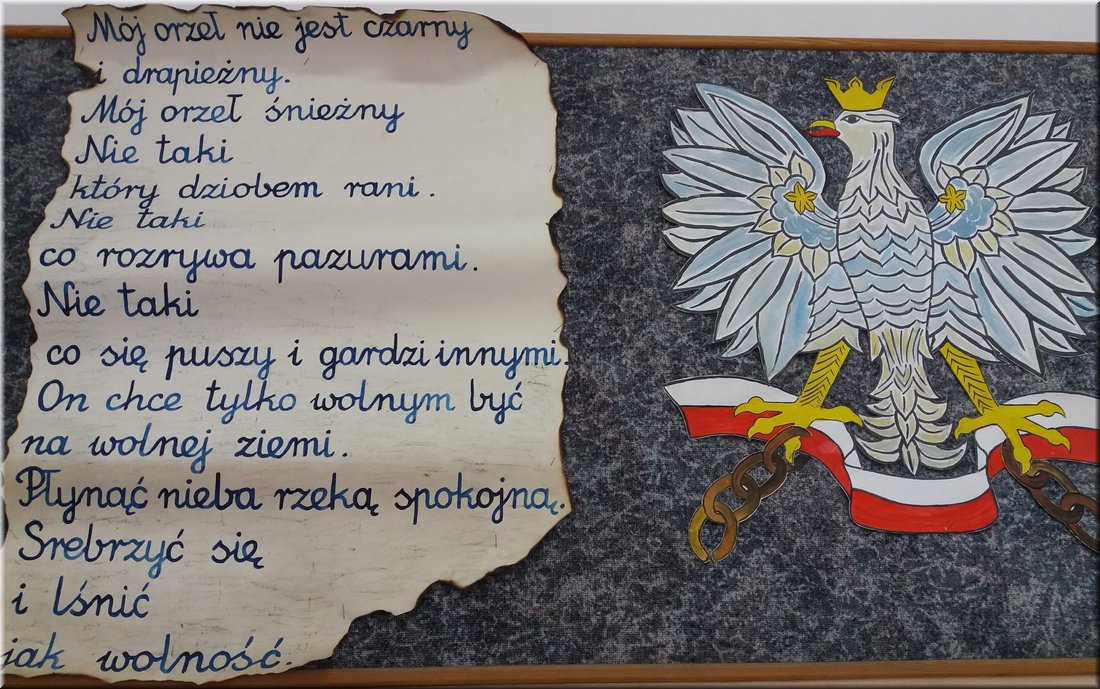 Mój orzeł nie jest czarny
i drapieżny.
Mój orzeł śnieżny
Nie taki
który dziobem rani.
Nie taki
co rozrywa pazurami.
Nie taki
co się puszy i gardzi innymi.
On chce tylko wolnym być
na wolnej ziemi.
Płynąć nieba rzeką spokojną.
Srebrzyć się
i lśnić
jak wolność.